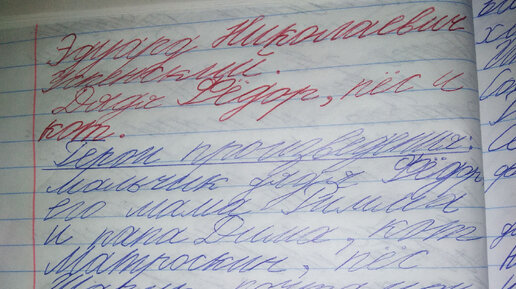 Эдуард Николаевич
Успенский.
Дядя Фёдор, пёс и
кот.
Герои произведения:
мальчик дядя Фёдор
его мама Римма
и папа Дима, кот
Матроскин, пёс
Шарик, почтальон